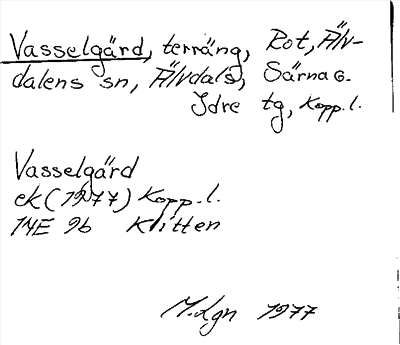 Vasselgärd, terräng, Rot, Älv-
dalens sn, Älvdals, Särna o.
Idre tg, Kopp.l.
Vasselgärd
ek (1977) Kopp.l.
14E 9b Klitten
M.Lgn 1977